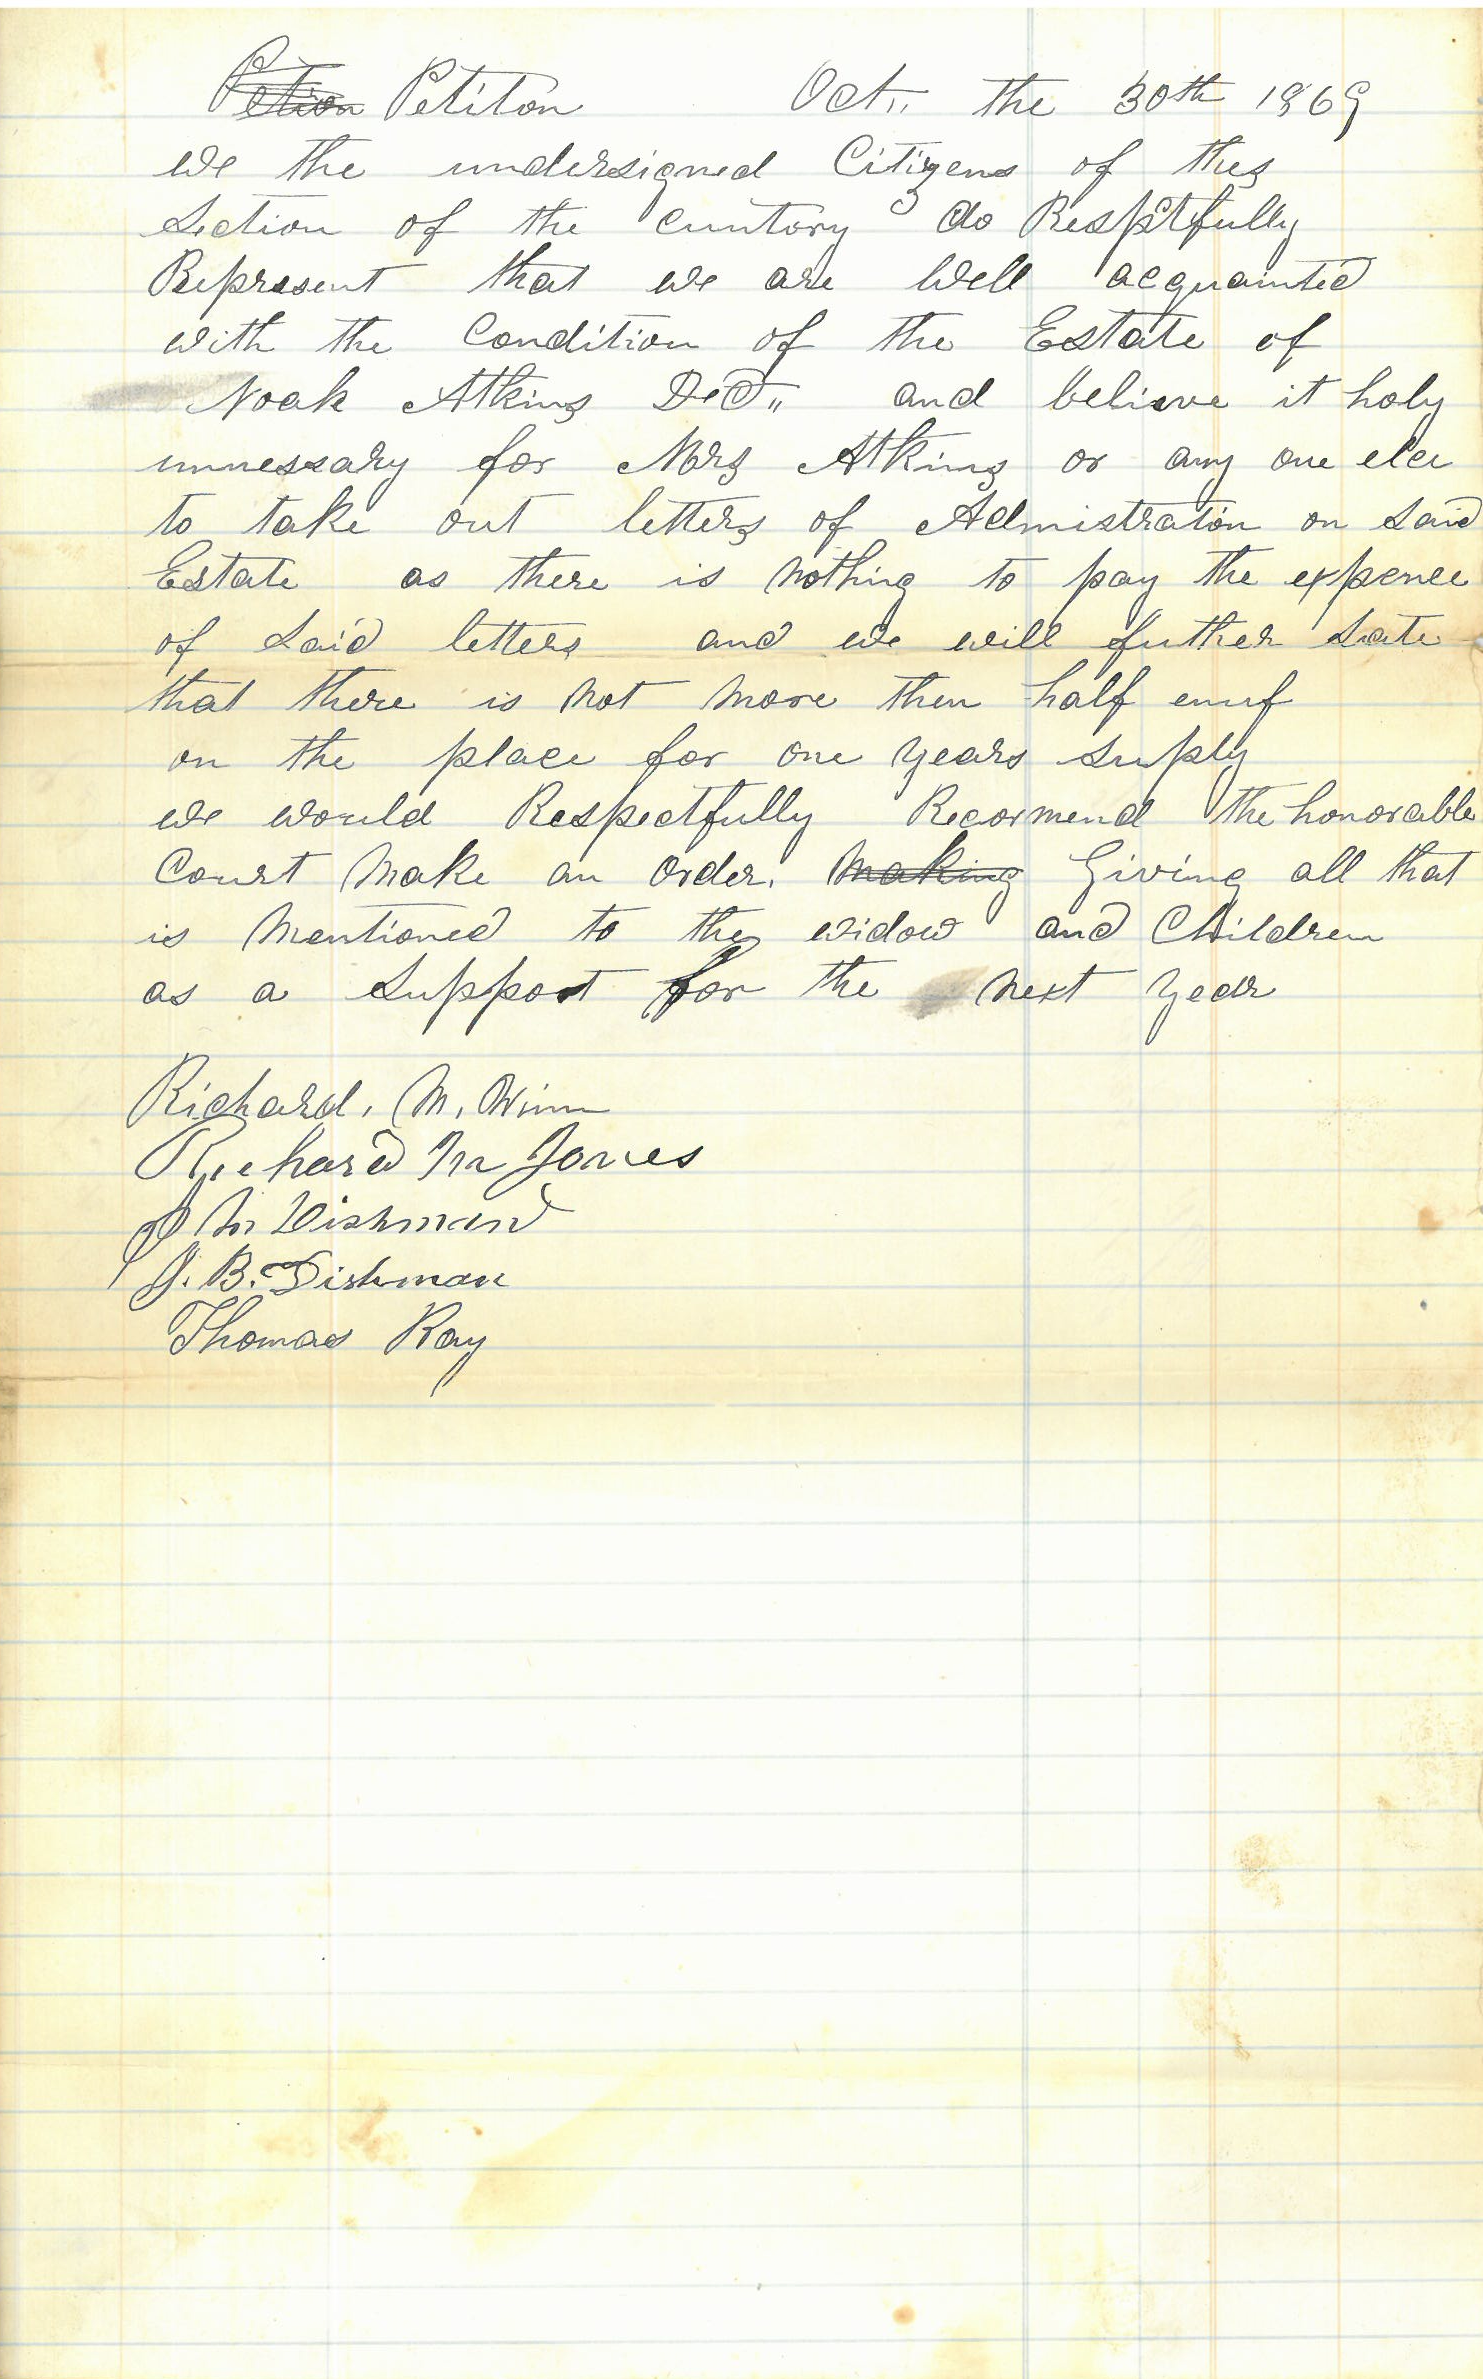 Petion Petiton Oct,, the 30th 1869
we the undersigned Citizens of this
Section of the cuntory do Resptfully
Represent that we are Well acquainted
with the Condition of the Estate of
Noah Atkins Decd,, and believe it holy
unnessary for Mrs Atkins or any one elce
to take out letters of Admistration on Said
Estate as there is Nothing to pay the expence
of Said letters and we will futher Sate
that there is Not More then half enuf
on the place for one years Suply
we would Respectfully Recormend the honorable
Court Make an Order. Making Giving all that
is Mentioned to the widow and Children
as a Support for the Next year
Richard. M. Winn
Richard M Jones
M Dishman
J. B. Dishman
Thomas Ray